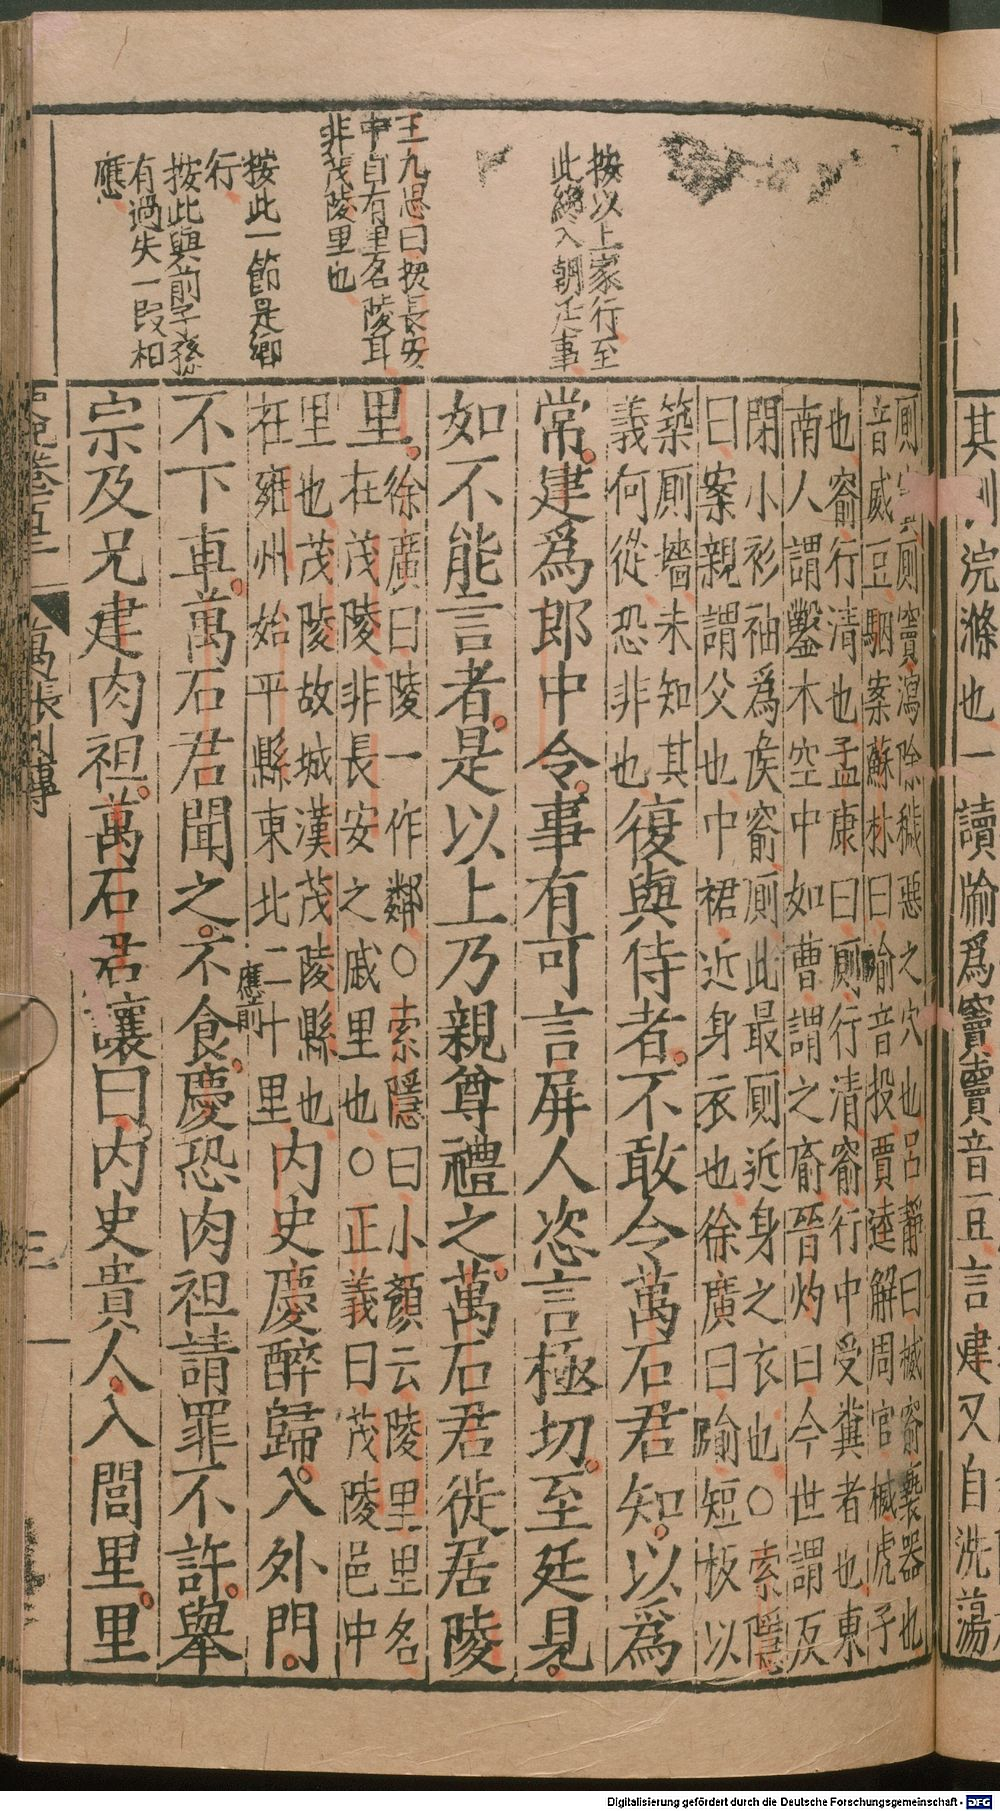 其
浣滌也一讀牏爲竇竇音豆言建又自洗蕩
按以上家行至
此終入朝廷事
王九思曰按長安
中自有里名陵耳
非茂陵里也
按此一節是鄉
行
按此與前子孫
有過失一段相
應
厠竇瀉除穢惡之穴也呂靜曰楲窬褻器也
音威豆駰案蘇林曰牏音投賈逵解周官楲虎子
也窬行清也孟康曰厠行清窬行中受糞者也東
南人謂鑿木空中如曹謂之窬晉灼曰今世謂反
閉小衫袖爲侯窬厠此最厠近身之衣也○索隱
曰案親謂父也中裙近身衣也徐廣曰牏短板以
築厠墻未知其
義何從恐非也
復與侍者不敢令萬石君知以爲
常建爲郎中令事有可言屏人恣言極切至廷見
如不能言者是以上乃親尊禮之萬石君徙居陵
里
徐廣曰陵一作鄰○索隱曰小顏云陵里里名
在茂陵非長安之戚里也○正義曰茂陵邑中
里也茂陵故城漢茂陵縣也
在雍州始平縣東北二十里
內史慶醉歸入外門
應前
不下車萬石君聞之不食慶恐肉袒請罪不許舉
宗及兄建肉袒萬石君讓曰內史貴人入閭里里
萬張列傳
三
Digitalisierung gefördert durch die Deutsche Forschungsgemeinschaft - DFG